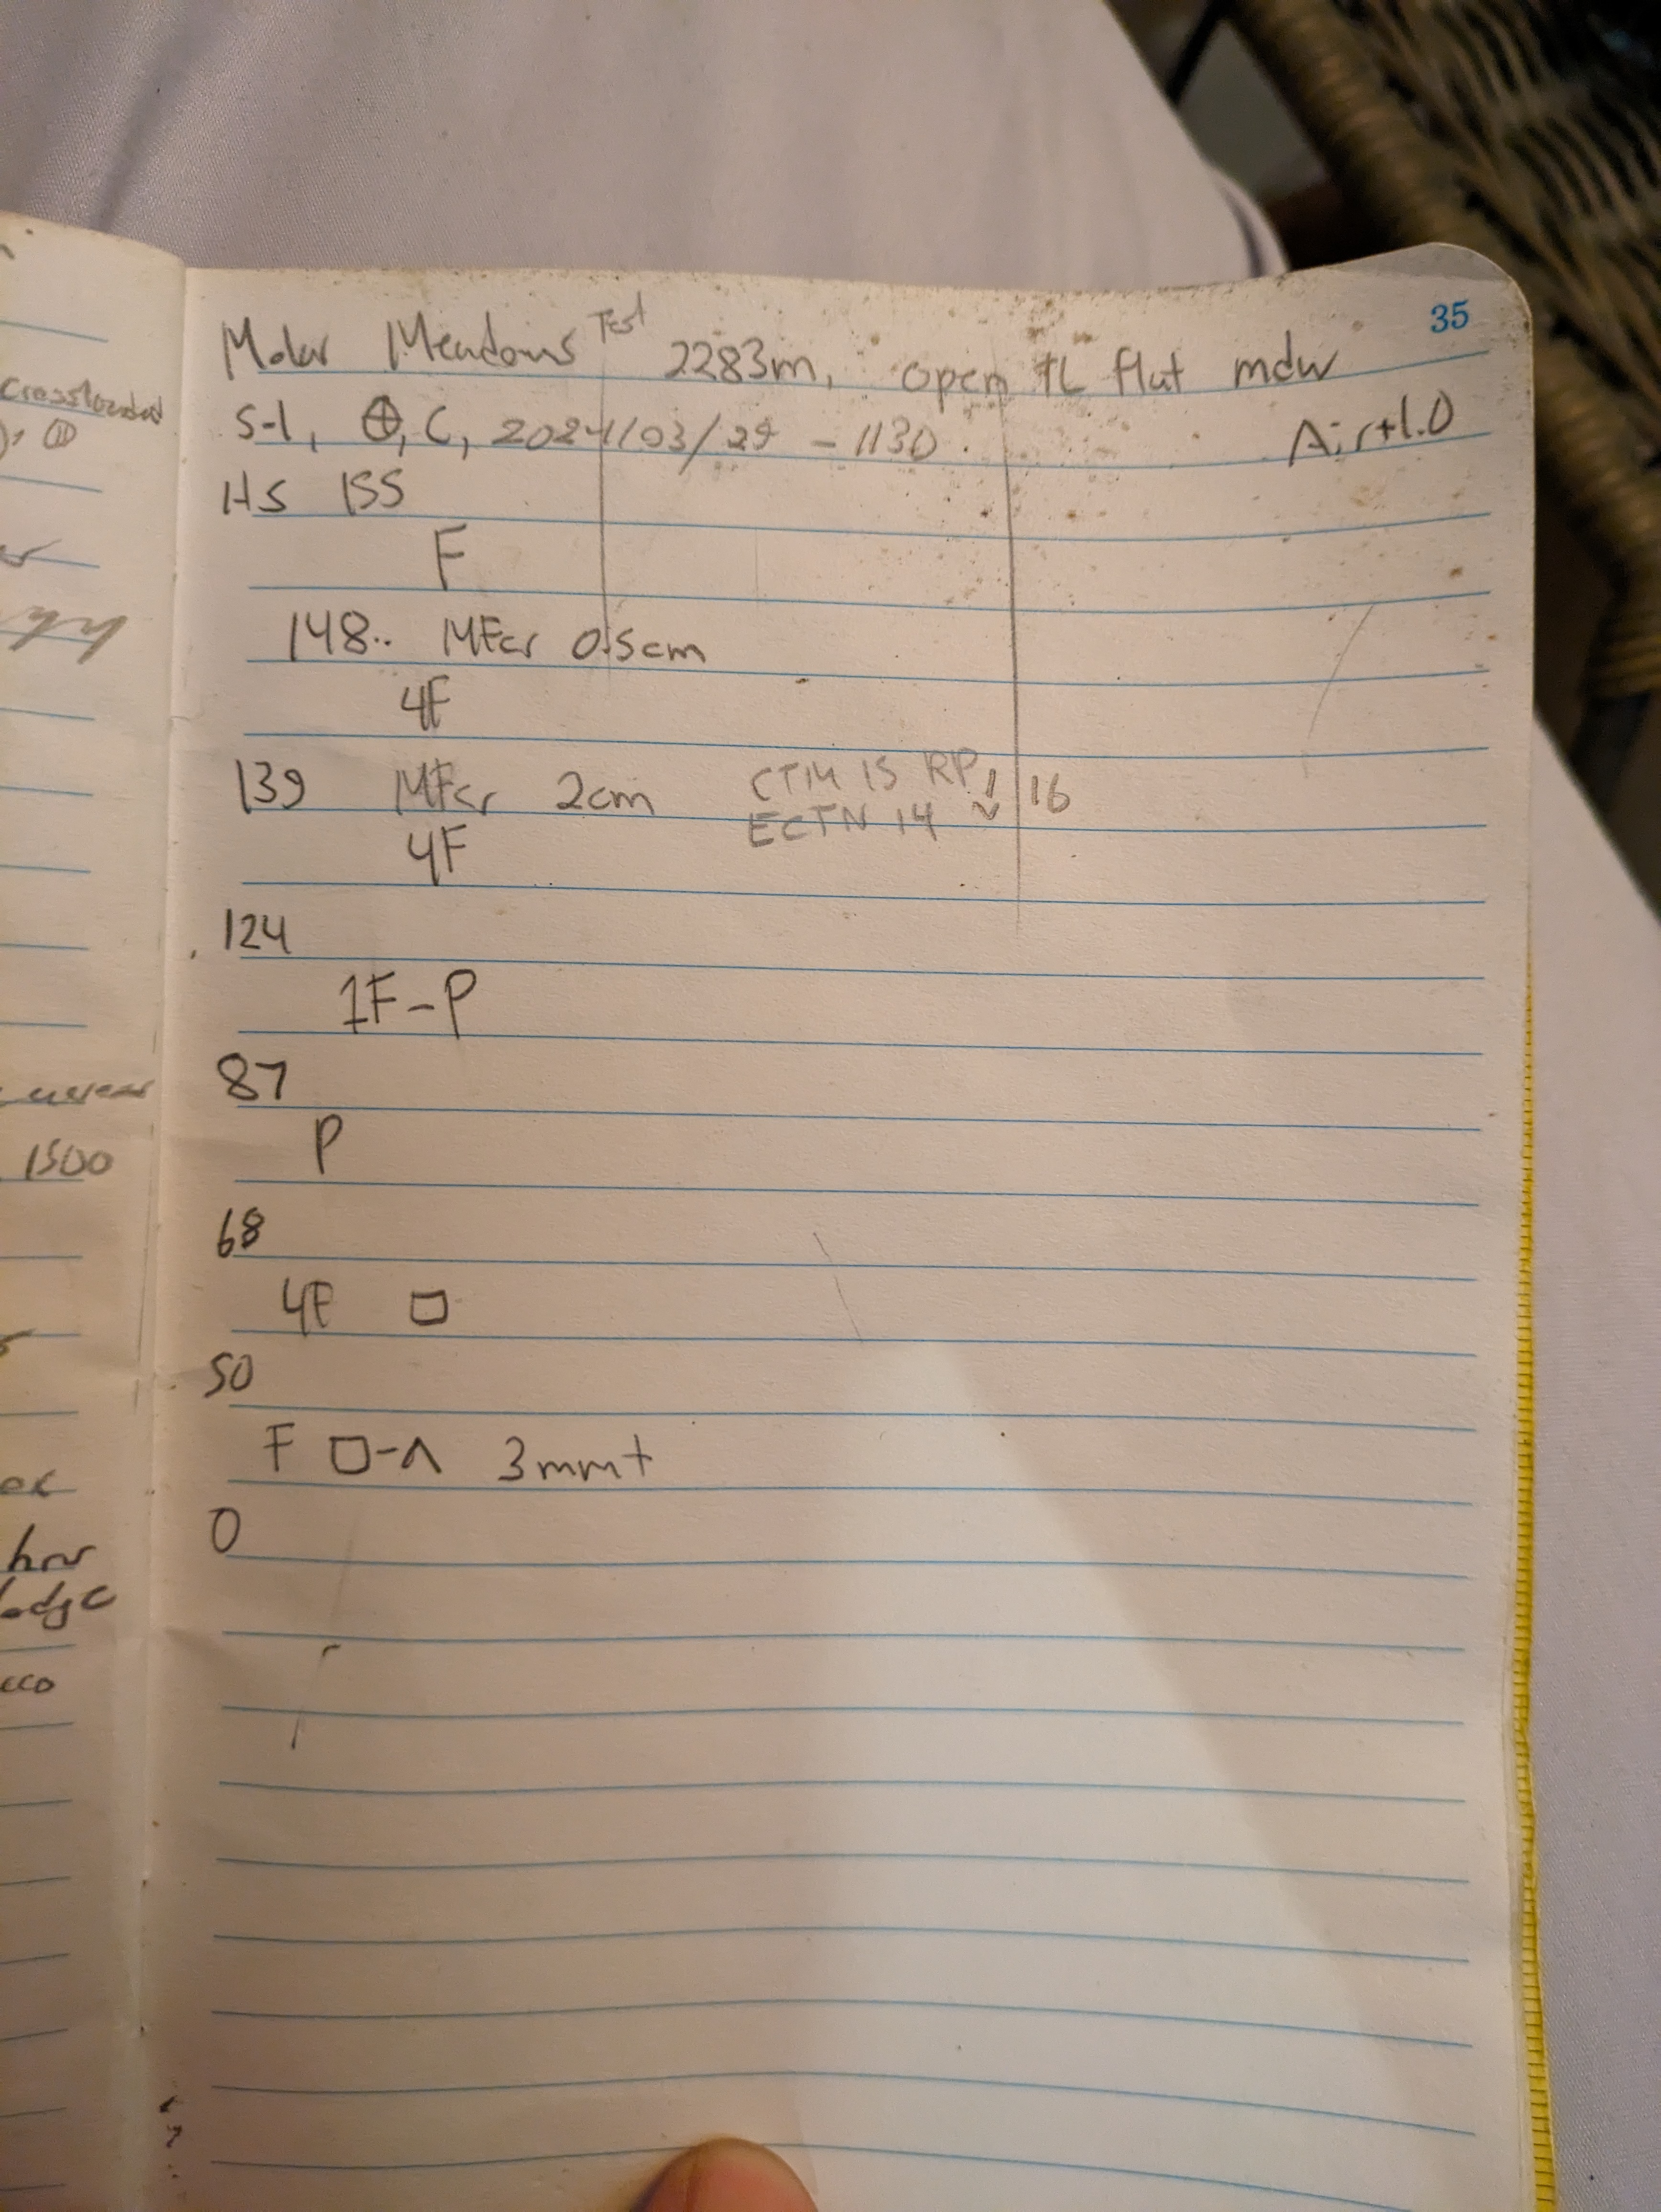 35
Molar Meadows Test 2283m, open TL flat mdw
S-1, ⊕, C, 2024/03/29 - 1130 Air+1.0
HS 155
F
148.. MFcr 0.5cm
4F
139 MFcr 2cm CTM 15 RP ↓ 16
ECTN 14
4F
124
1F-P
87
P
68
4F □
50
F □-^ 3mm+
0
crossloaded
1500
hrv